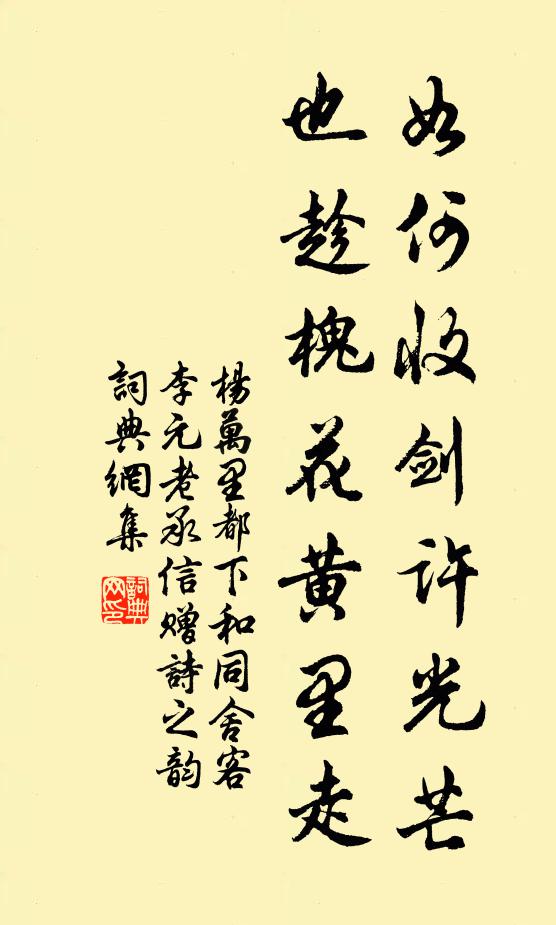 如何收剑許光芒
也趁槐花黄里走
楊萬里都下和同舍客
李元老承信赠詩之韵
詞典網集
詞典
网印